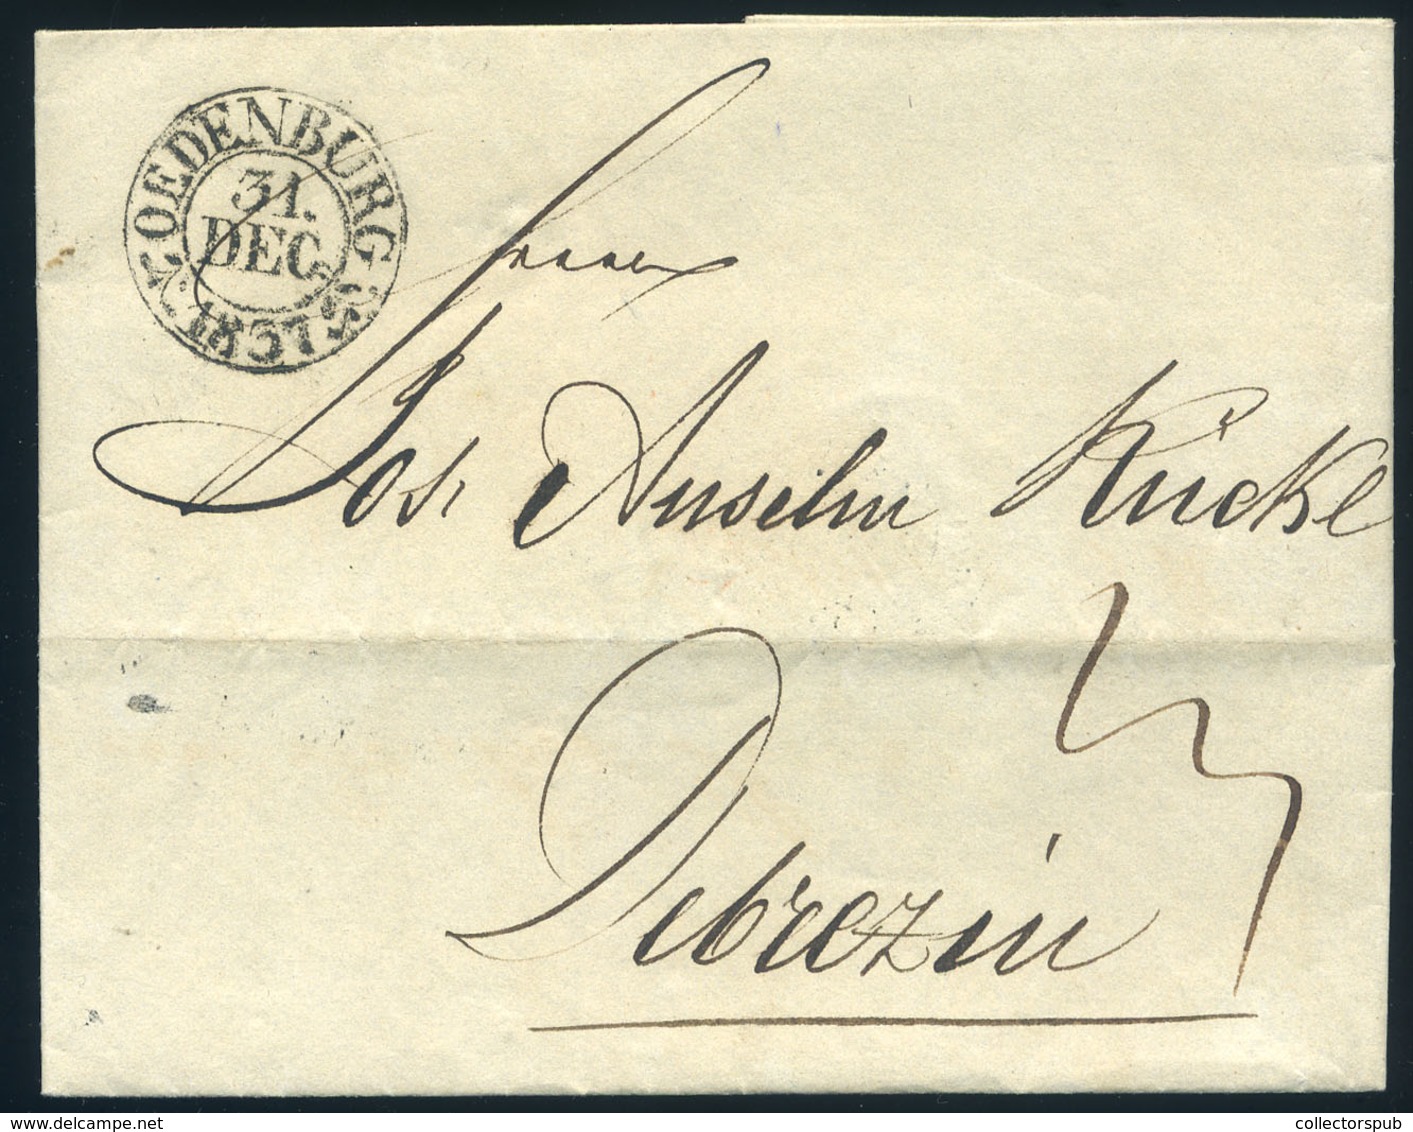 OEDENBURG
31.
DEC.
Herrn
Jos. Anselm Rücke
Debrezin
www.delcampe.net
collectorspub